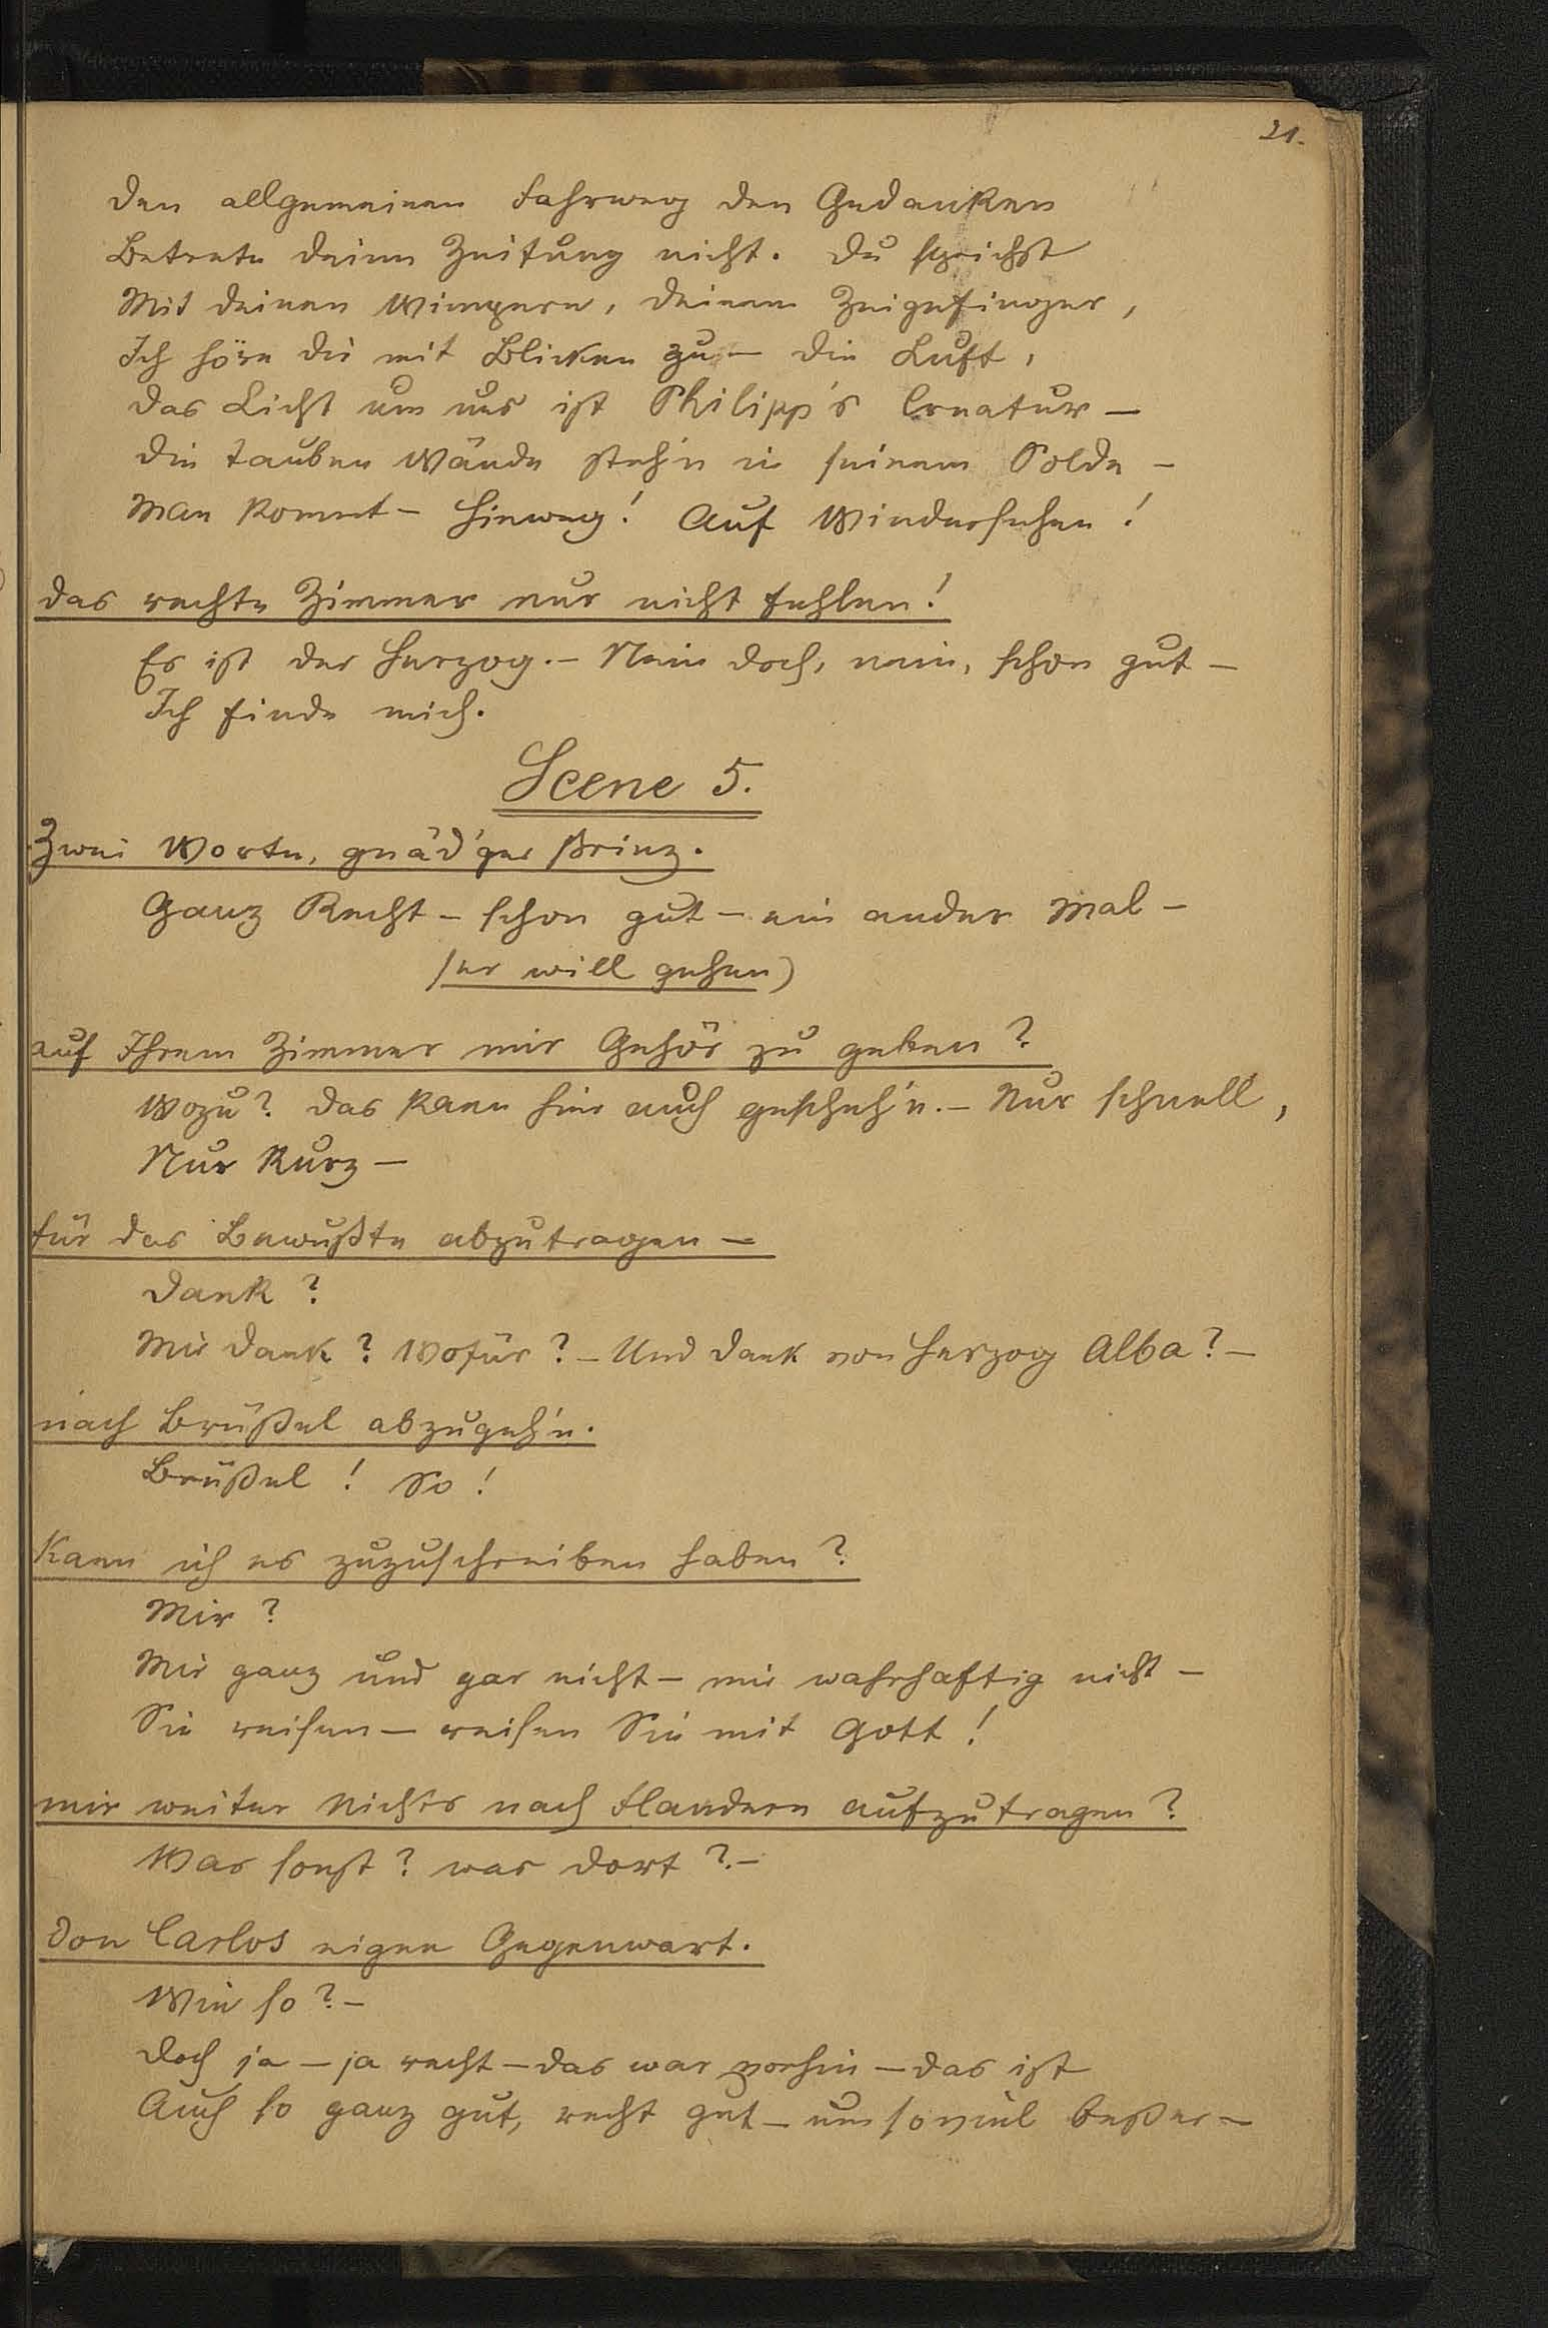 21.
Den allgemeinen Fahrweg der Gedanken
Betrete deine Zeitung nicht. Du sprichst
Mit deinen Wimpern, deinem Zeigefinger,
Ich höre dir mit Blicken zu – Die Luft,
Das Licht um uns ist Philipp's Creatur –
Die tauben Wände steh'n in seinem Solde –
Man kommt – Hinweg! Auf Wiedersehen!
das rechte Zimmer nur nicht fehlen!
Es ist der Herzog. – Nein doch, nein, schon gut –
Ich finde mich.
Scene 5.
Zwei Worte, gnäd'ger Prinz.
Ganz Recht – schon gut – ein ander Mal –
(er will gehen)
auf Ihrem Zimmer mir Gehör zu geben?
Wozu? Das kann hier auch gescheh'n. – Nur schnell,
Nur kurz –
für das Bewußte abzutragen –
Dank?
Mir Dank? Wofür? – Und Dank von Herzog Alba? –
nach Brüßel abzugeh'n.
Brüßel! So!
Kann ich es zuzuschreiben haben?
Mir?
Mir ganz und gar nicht – mir wahrhaftig nicht –
Sie reisen – reisen Sie mit Gott!
mir weiter Nichts nach Flandern aufzutragen?
Was sonst? was dort? –
Don Carlos eigne Gegenwart.
Wie so? –
Doch ja – ja recht – das war vorhin – das ist
Auch so ganz gut, recht gut – um soviel beßer –